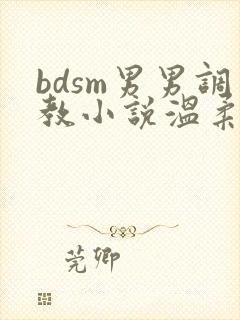 bdsm男男調
教小说溫柔
莞卿